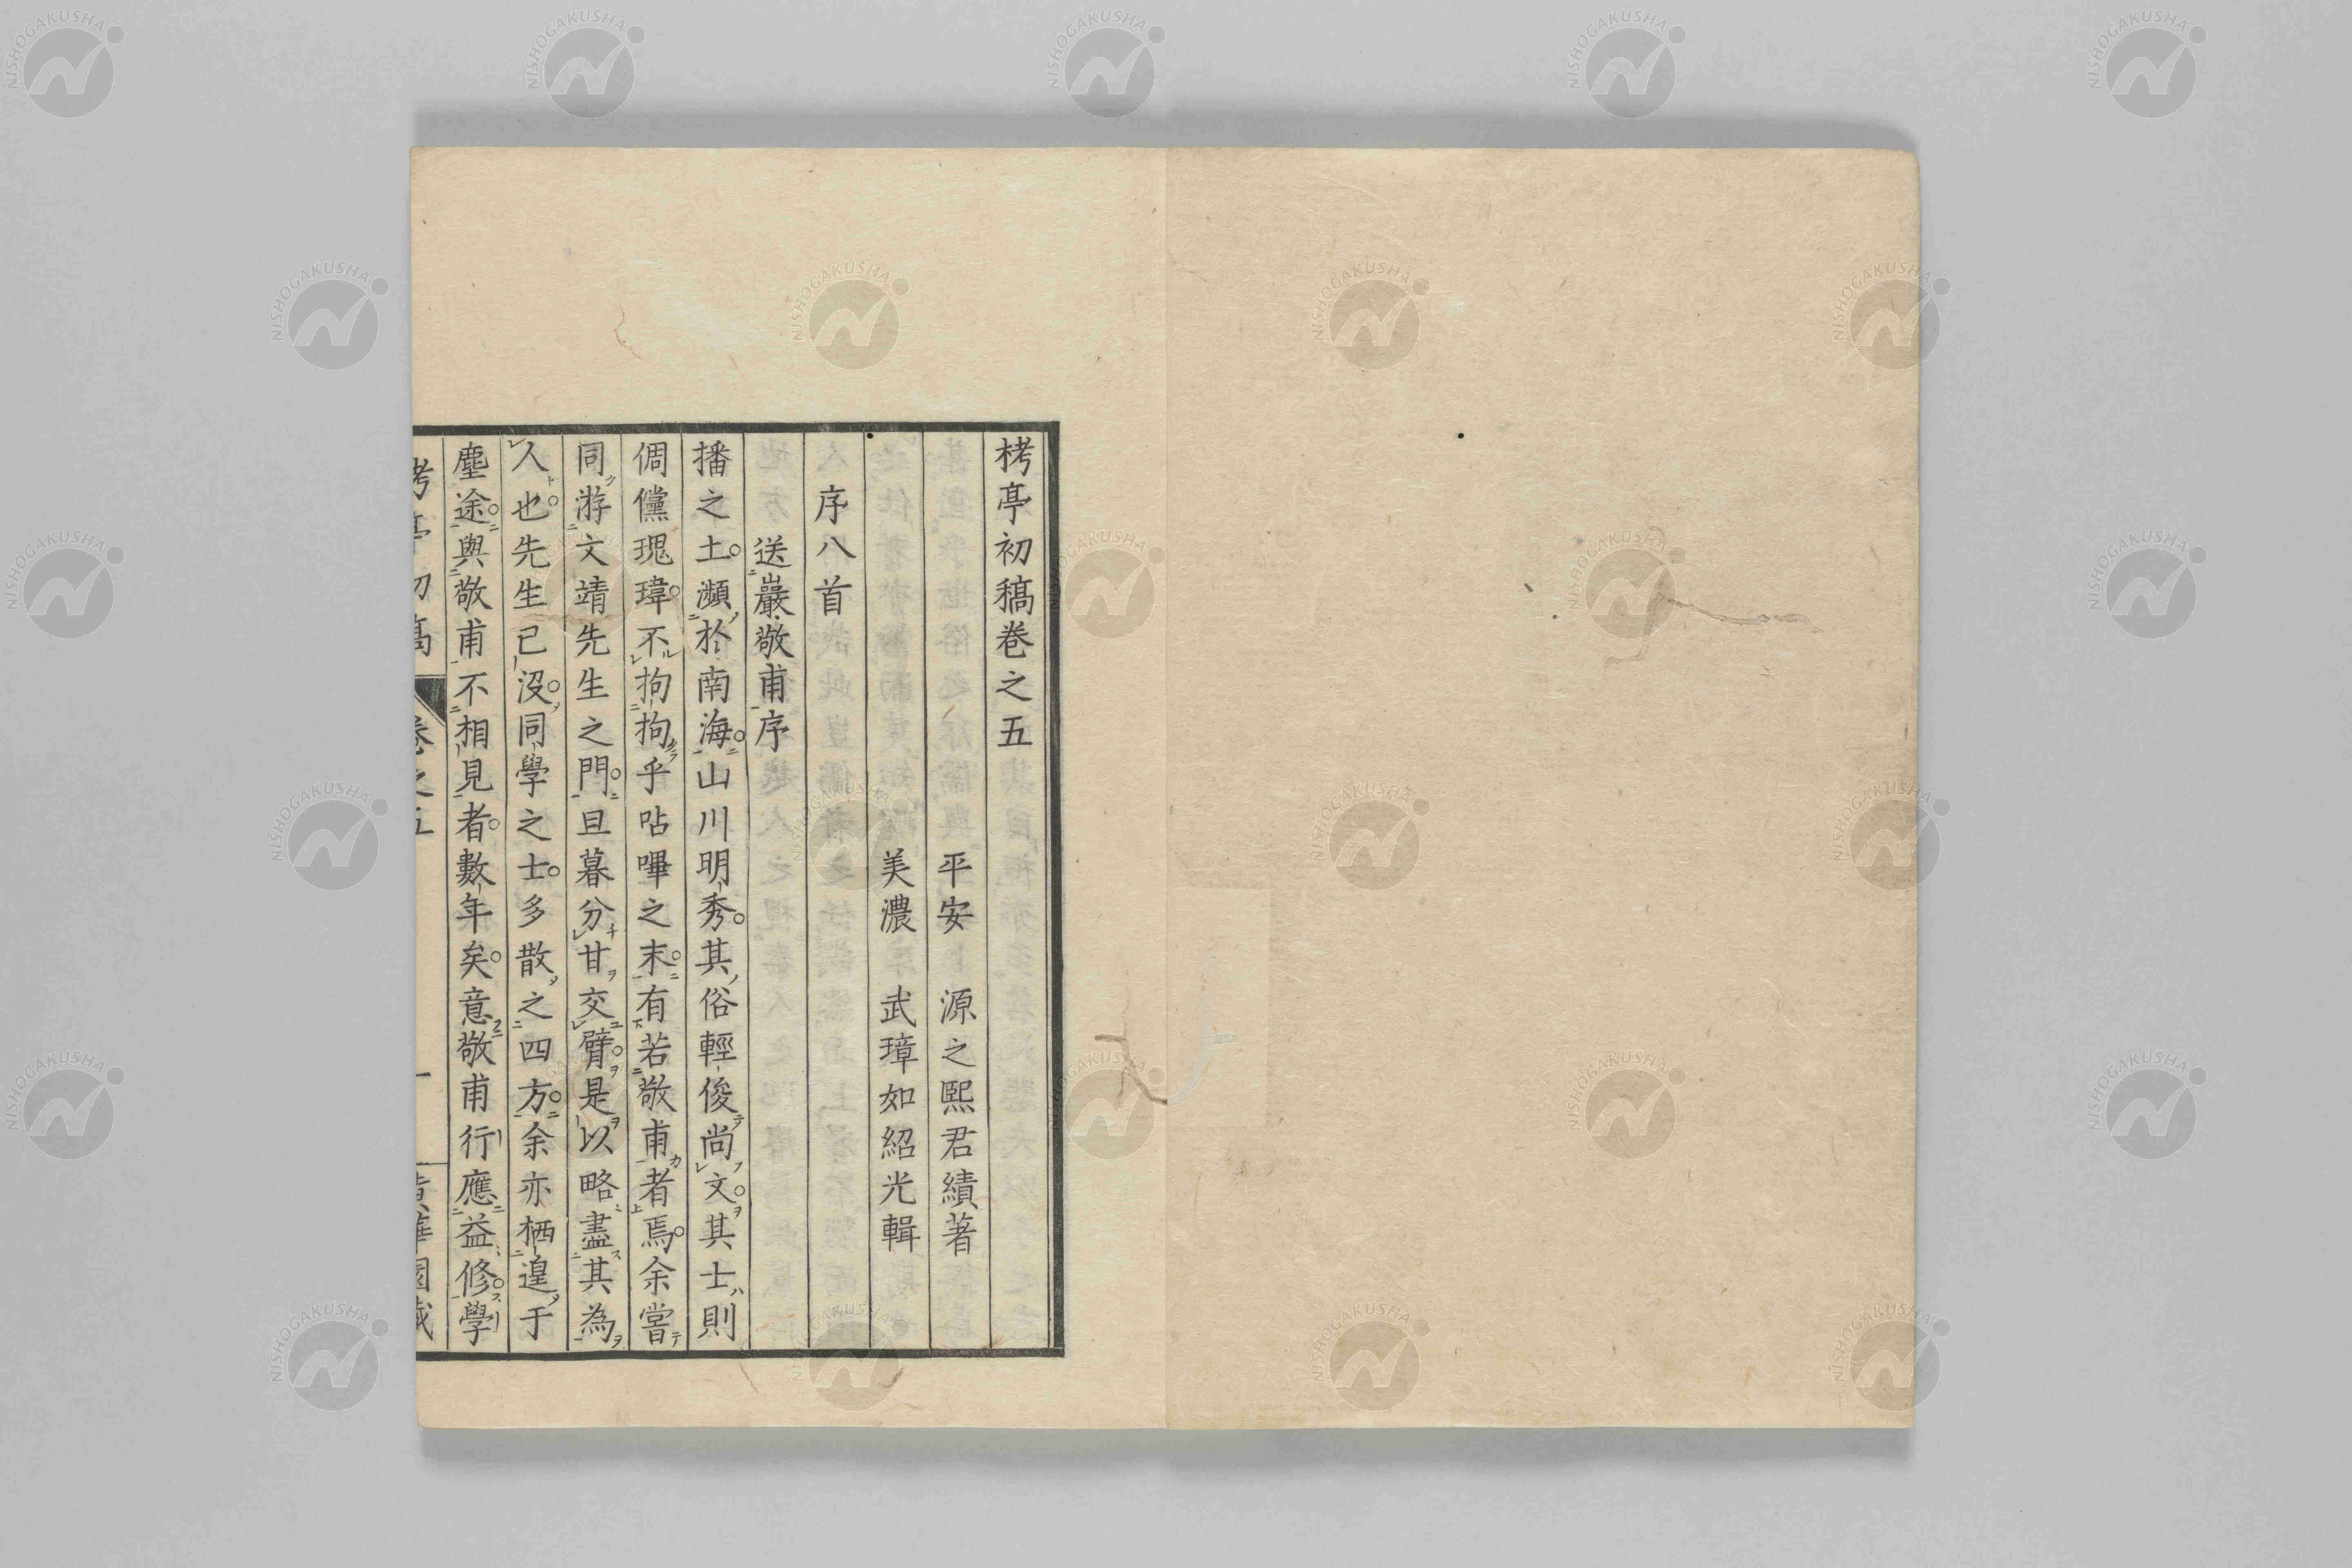 栲亭初稿卷之五
平安 源之熙君績著
美濃 武璋如紹光輯
序八首
送巖敬甫序
播之土瀕於南海山川明秀其俗輕俊尚文其士則
倜儻瑰瑋不拘拘乎呫嗶之末有若敬甫者焉余嘗
同游文靖先生之門旦暮分甘交臂是以略盡其為
人也先生已沒同學之士多散之四方余亦栖遑于
塵途與敬甫不相見者數年矣意敬甫行應益修學
卷之五
一
NISHOGAKUSHA